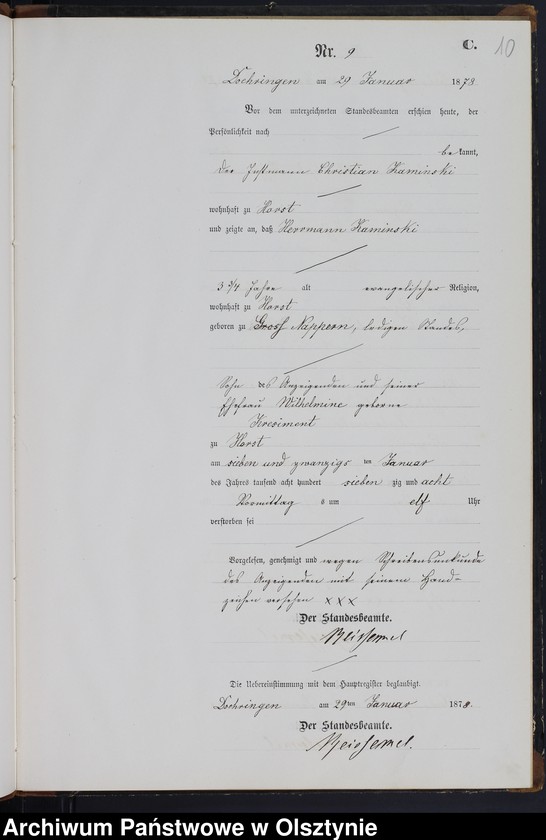 C.
10
Nr. 9
Doehringen am 29 Januar 1878
Vor dem unterzeichneten Standesbeamten erschien heute, der
Persönlichkeit nach
bekannt,
der Instmann Christian Kaminski
wohnhaft zu Horst
und zeigte an, daß Herrmann Kaminski
3 3/4 Jahre alt evangelischer Religion,
wohnhaft zu Horst
geboren zu Gross Nappern, ledigen Standes,
Sohn des Anzeigenden und seiner
Ehefrau Wilhelmine geborne
zu Horst
am sieben und zwanzigsten Januar
des Jahres tausend acht hundert siebenzig und acht
Vormittags um elf Uhr
verstorben sei
Vorgelesen, genehmigt und wegen Schreibensunkunde
des Anzeigenden mit seinem Hand-
zeichen versehen xxx
Der Standesbeamte.
Die Uebereinstimmung mit dem Hauptregister beglaubigt.
Doehringen am 29ten Januar 1878.
Der Standesbeamte.
Archiwum Państwowe w Olsztynie